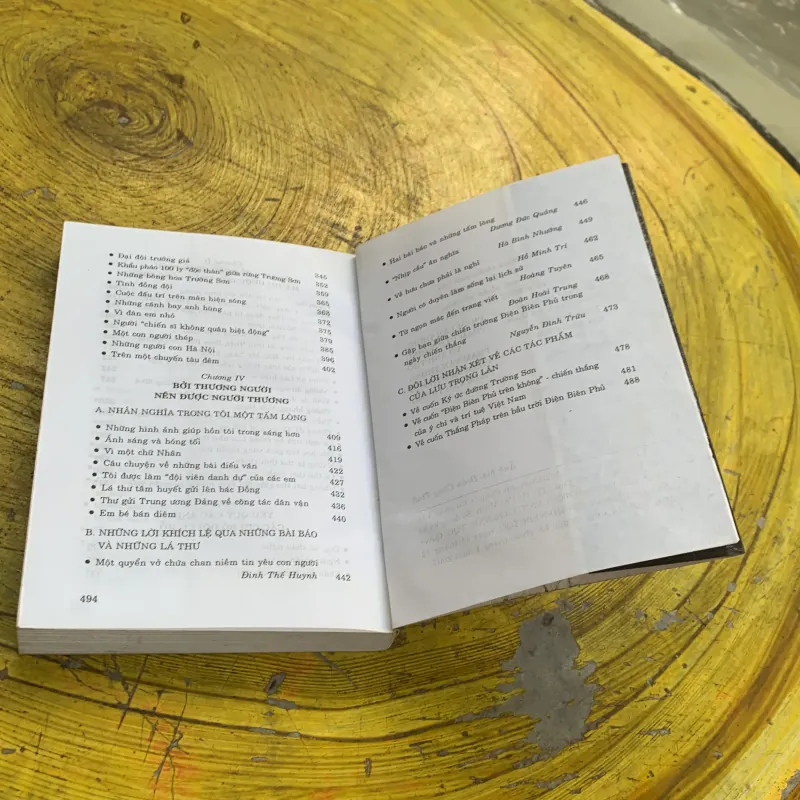 • Đại đội trưởng già 345
• Khẩu pháo 100 ly "độc thân" giữa rừng Trường Sơn 352
• Những bông hoa Trường Sơn 359
• Tình đồng đội 365
• Cuộc đấu trí trên màn hiện sóng 368
• Những cánh bay anh hùng 372
• Vì đàn em nhỏ 375
• Người "chiến sĩ không quân biệt động" 379
• Một con người thép 385
• Những người con Hà Nội 396
• Trên một chuyến tàu đêm 402
Chương IV
BỞI THƯƠNG NGƯỜI
NÊN ĐƯỢC NGƯỜI THƯƠNG
A. NHÂN NGHĨA TRONG TÔI MỘT TẤM LÒNG
• Những hình ảnh giúp hồn tôi trong sáng hơn 409
• Ánh sáng và bóng tối 416
• Vì một chữ Nhân 419
• Câu chuyện về những bài điếu văn 422
• Tôi được làm "đội viên danh dự" của các em 427
• Lá thư tâm huyết gửi lên bác Đồng 432
• Thư gửi Trung ương Đảng về công tác dân vận 436
• Em bé bán diêm 440
B. NHỮNG LỜI KHÍCH LỆ QUA NHỮNG BÀI BÁO
VÀ NHỮNG LÁ THƯ
• Một quyển vở chứa chan niềm tin yêu con người
Đinh Thế Huynh 442
494
• Hai bài báo và những tấm lòng
Dương Đức Quảng 446
• "Nhịp cầu" ân nghĩa Hà Bình Nhưỡng 449
• Về hưu chưa phải là nghỉ Hồ Minh Trí 462
• Người có duyên làm sống lại lịch sử
Hoàng Tuyên 465
• Từ ngọn mác đến trang viết Đoàn Hoài Trung 468
• Gặp bạn giữa chiến trường Điện Biên Phủ trong
ngày chiến thắng Nguyễn Đình Trừu 473
C. ĐÔI LỜI NHẬN XÉT VỀ CÁC TÁC PHẨM
CỦA LƯU TRỌNG LÂN
• Về cuốn Ký ức đường Trường Sơn 478
• Về cuốn "Điện Biên Phủ trên không" - chiến thắng
của ý chí và trí tuệ Việt Nam 481
• Về cuốn Thắng Pháp trên bầu trời Điện Biên Phủ 488